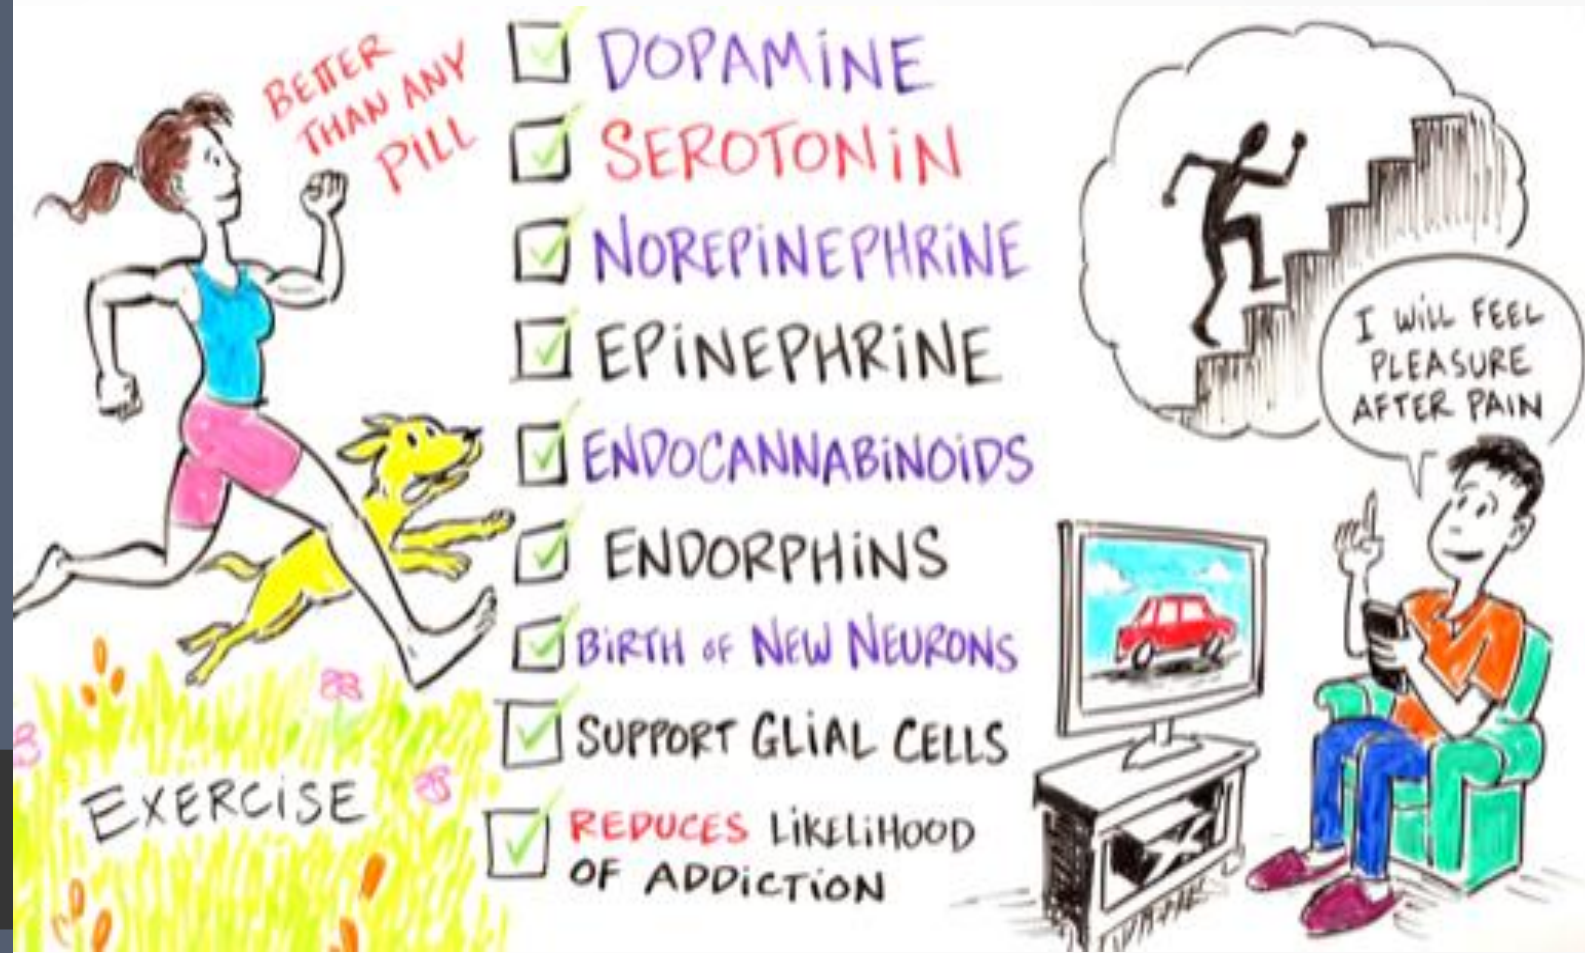 BETTER
THAN ANY
PILL
DOPAMINE
SEROTONIN
NOREPINEPHRINE
EPINEPHRINE
ENDOCANNABINOIDS
ENDORPHINS
BIRTH OF NEW NEURONS
SUPPORT GLIAL CELLS
REDUCES LIKELIHOOD
OF ADDICTION
EXERCISE
I WILL FEEL
PLEASURE
AFTER PAIN